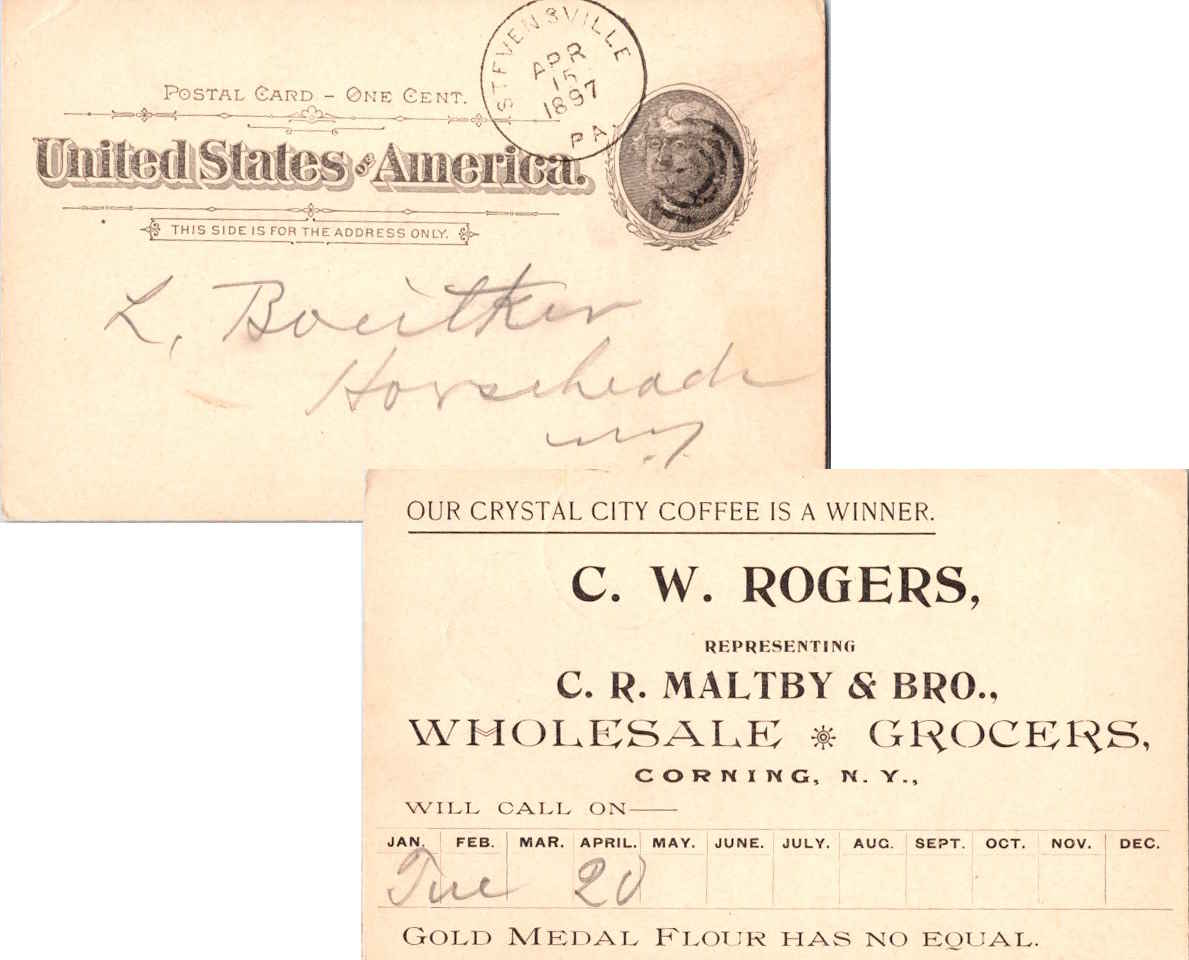 STEVENSVILLE
APR
15
1897
PA.
POSTAL CARD - ONE CENT.
United States of America.
THIS SIDE IS FOR THE ADDRESS ONLY.
L. Boeitker
Horseheads
N.Y.
OUR CRYSTAL CITY COFFEE IS A WINNER.
C. W. ROGERS,
REPRESENTING
C. R. MALTBY & BRO.,
WHOLESALE GROCERS,
CORNING, N. Y.,
WILL CALL ON
JAN. FEB. MAR. APRIL. MAY. JUNE. JULY. AUG. SEPT. OCT. NOV. DEC.
Tue 20
GOLD MEDAL FLOUR HAS NO EQUAL.